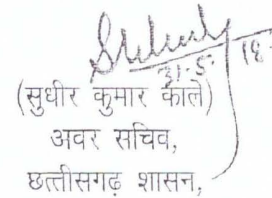 31.5.18
(सुधीर कुमार काले)
अवर सचिव,
छत्तीसगढ़ शासन,